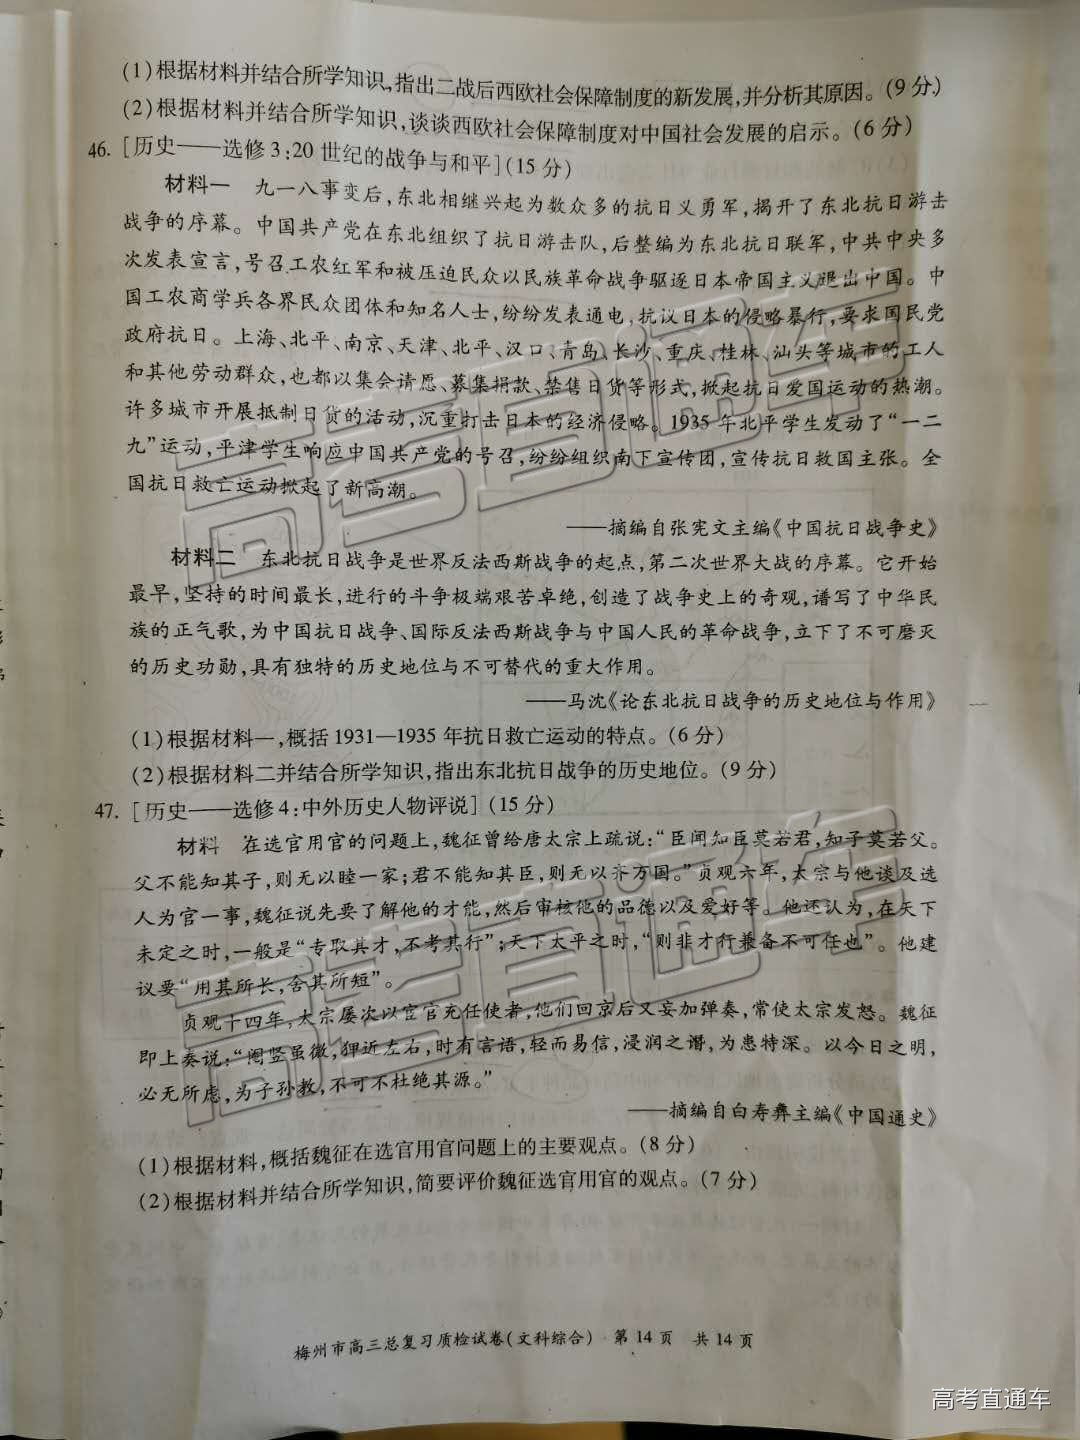 (1)根据材料并结合所学知识,指出二战后西欧社会保障制度的新发展,并分析其原因。(9分)
(2)根据材料并结合所学知识,谈谈西欧社会保障制度对中国社会发展的启示。(6分)
46.[历史——选修3:20世纪的战争与和平](15分)
材料一 九一八事变后,东北相继兴起为数众多的抗日义勇军,揭开了东北抗日游击
战争的序幕。中国共产党在东北组织了抗日游击队,后整编为东北抗日联军,中共中央多
次发表宣言,号召工农红军和被压迫民众以民族革命战争驱逐日本帝国主义退出中国。中
国工农商学兵各界民众团体和知名人士,纷纷发表通电,抗议日本的侵略暴行,要求国民党
政府抗日。上海、北平、南京、天津、北平、汉口、青岛、长沙、重庆、桂林、汕头等城市的工人
和其他劳动群众,也都以集会请愿、募集捐款、禁售日货等形式,掀起抗日爱国运动的热潮。
许多城市开展抵制日货的活动,沉重打击日本的经济侵略。1935年北平学生发动了“一二
九”运动,平津学生响应中国共产党的号召,纷纷组织南下宣传团,宣传抗日救国主张。全
国抗日救亡运动掀起了新高潮。
——摘编自张宪文主编《中国抗日战争史》
材料二 东北抗日战争是世界反法西斯战争的起点,第二次世界大战的序幕。它开始
最早,坚持的时间最长,进行的斗争极端艰苦卓绝,创造了战争史上的奇观,谱写了中华民
族的正气歌,为中国抗日战争、国际反法西斯战争与中国人民的革命战争,立下了不可磨灭
的历史功勋,具有独特的历史地位与不可替代的重大作用。
——马沈《论东北抗日战争的历史地位与作用》
(1)根据材料一,概括1931—1935年抗日救亡运动的特点。(6分)
(2)根据材料二并结合所学知识,指出东北抗日战争的历史地位。(9分)
47.[历史——选修4:中外历史人物评说](15分)
材料 在选官用官的问题上,魏征曾给唐太宗上疏说:“臣闻知臣莫若君,知子莫若父。
父不能知其子,则无以睦一家;君不能知其臣,则无以齐万国。”贞观六年,太宗与他谈及选
人为官一事,魏征说先要了解他的才能,然后审核他的品德以及爱好等。他还认为,在天下
未定之时,一般是“专取其才,不考其行”;天下太平之时,“则非才行兼备不可任也”。他建
议要“用其所长,舍其所短”。
贞观十四年,太宗屡次以宦官充任使者,他们回京后又妄加弹奏,常使太宗发怒。魏征
即上奏说:“阉竖虽微,狎近左右,时有言语,轻而易信,浸润之谮,为患特深。以今日之明,
必无所虑,为子孙教,不可不杜绝其源。”
——摘编自白寿彝主编《中国通史》
(1)根据材料,概括魏征在选官用官问题上的主要观点。(8分)
(2)根据材料并结合所学知识,简要评价魏征选官用官的观点。(7分)
梅州市高三总复习质检试卷(文科综合) 第14页 共14页
高考直通车
高考直通车
高考直通车